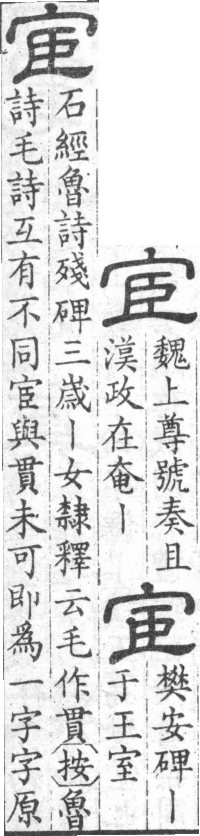 宦
魏上尊號奏且
漢政在奄丨
宦
樊安碑丨
于王室
宦
石經魯詩殘碑三歲丨女隸釋云毛作貫按魯
詩毛詩互有不同宦與貫未可即爲一字字原